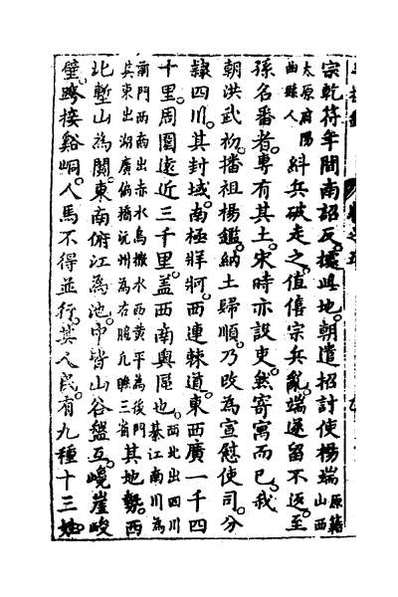 宗乾符年間南詔反據此地朝遣招討使楊端原籍山西
太原府陽曲縣人糾兵破走之值僖宗兵亂端遂留不返至
孫名番者專有其土宋時亦設吏然寄寓而已我
朝洪武初播祖楊鑑納土歸順乃改為宣慰使司分
隸四川其封域南極牂牁西連棘道東西廣一千四
十里周圍遠近三千里蓋西南奥區也西北出四川綦江南川為
前門西南出赤水烏撒水西黄平為後門
其東出湖廣偏橋沅州為右腋亢瞰三省其地勢西
北塹山為關東南俯江為池中皆山谷盤互巉崖峻
壁跨接谿峒人馬不得並行其人民有九種十三姓